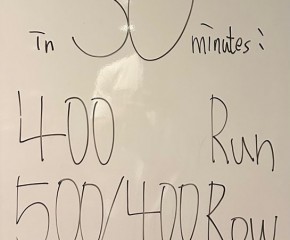 in 30 minutes:
400 Run
500/400 Row